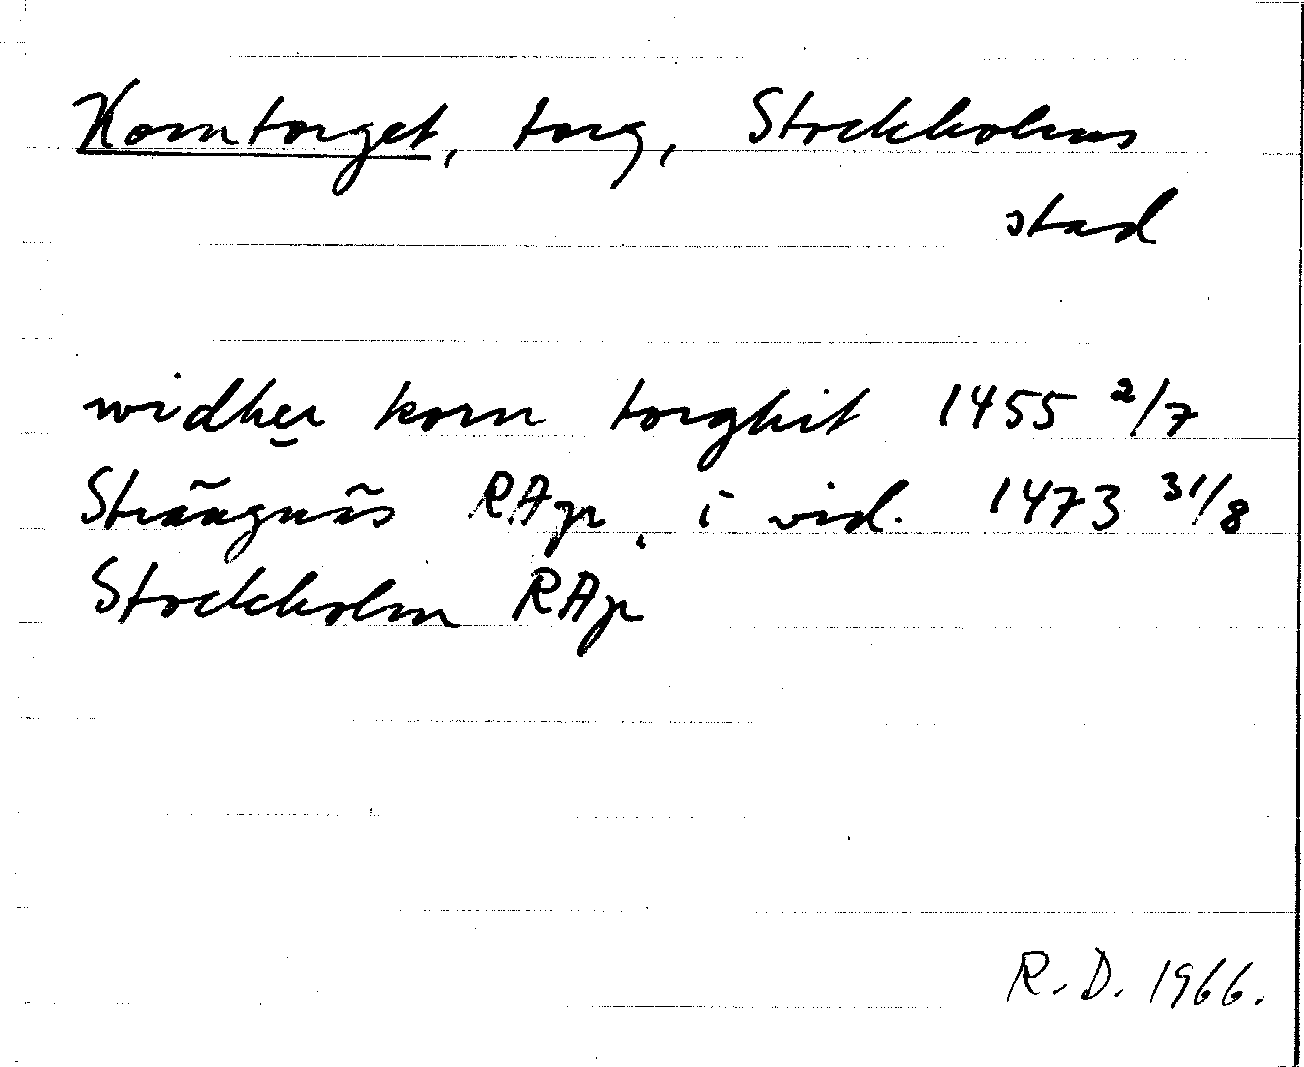 Korntorget, torg, Stockholms
stad
widher korn torghit 1455 2/7
Strängnäs RAp, i vid. 1473 31/8
Stockholm RAp
R. D. 1966.